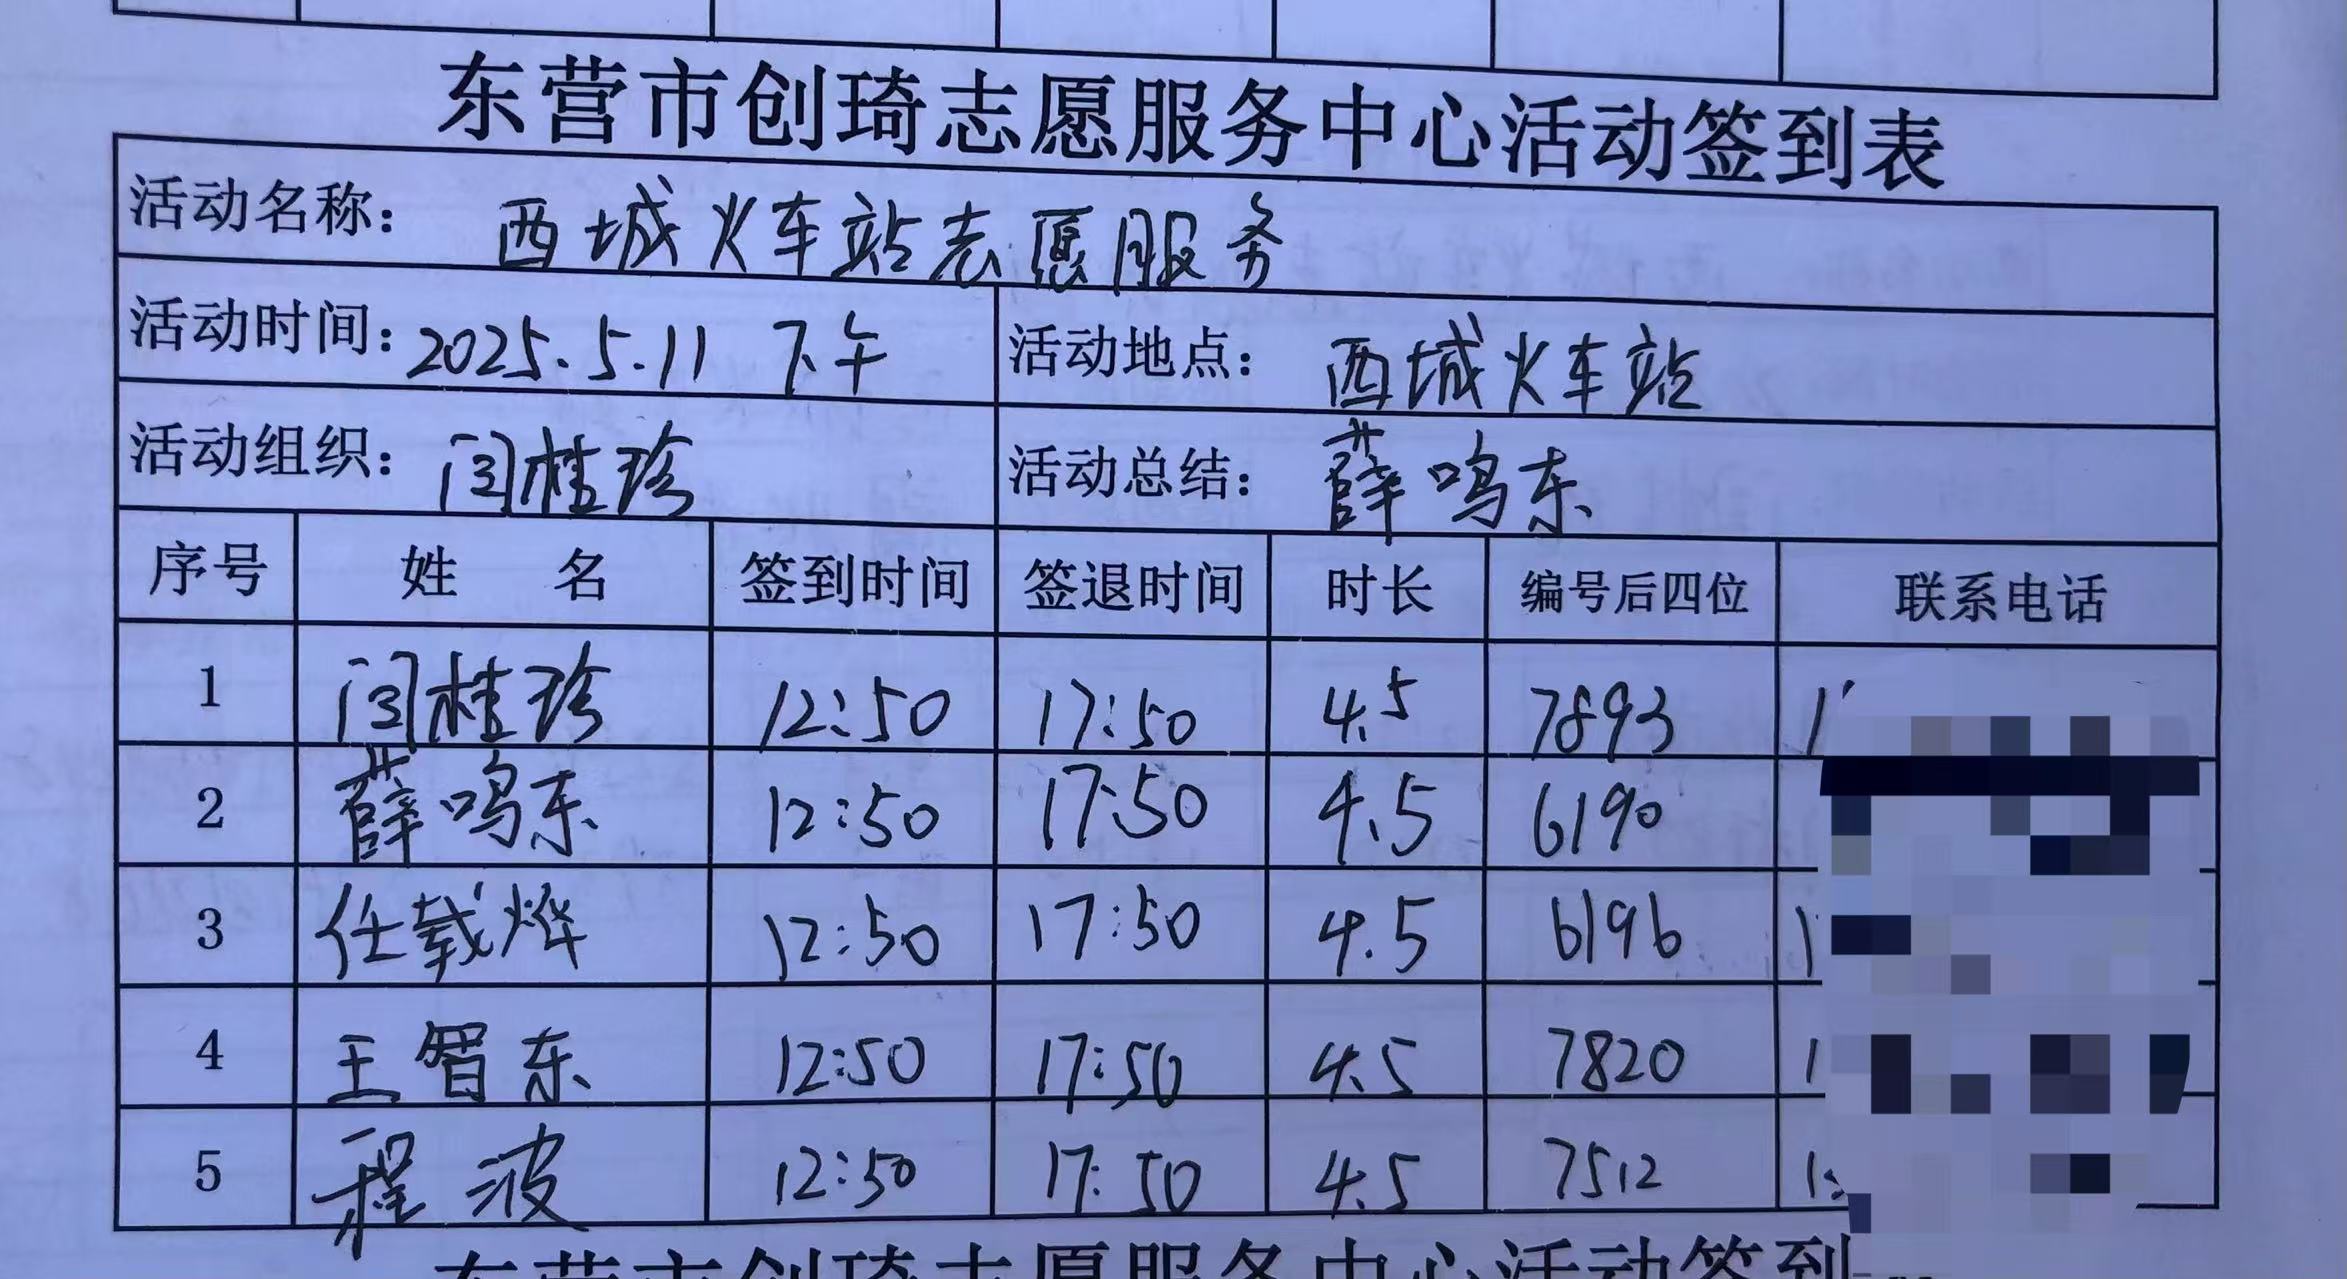 东营市创琦志愿服务中心活动签到表
活动名称： 西城火车站志愿服务
活动时间：2025.5.11 下午 活动地点： 西城火车站
活动组织： 闫桂珍 活动总结： 薛鸣东
序号 姓 名 签到时间 签退时间 时长 编号后四位 联系电话
1 闫桂珍 12:50 17:50 4.5 7893 1
2 薛鸣东 12:50 17:50 4.5 6190
3 任载烨 12:50 17:50 4.5 6196 1
4 王智东 12:50 17:50 4.5 7820 1
5 程波 12:50 17:50 4.5 7512 1
东营市创琦志愿服务中心活动签到